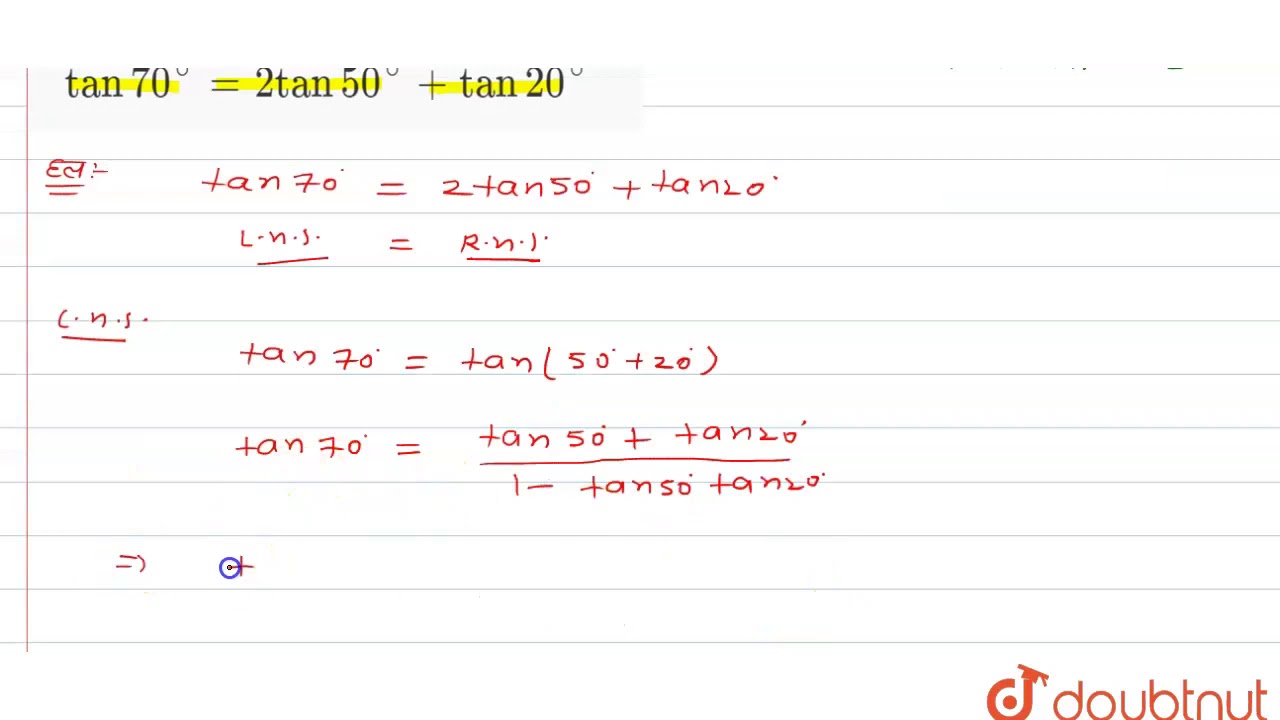 tan 70° = 2tan 50° + tan 20°
हल :-
tan 70° = 2 tan 50° + tan 20°
L.H.S. = R.H.S.
L.H.S.
tan 70° = tan ( 50° + 20° )
tan 70° = tan 50° + tan 20°
1 - tan 50° tan 20°
⇒ t
doubtnut